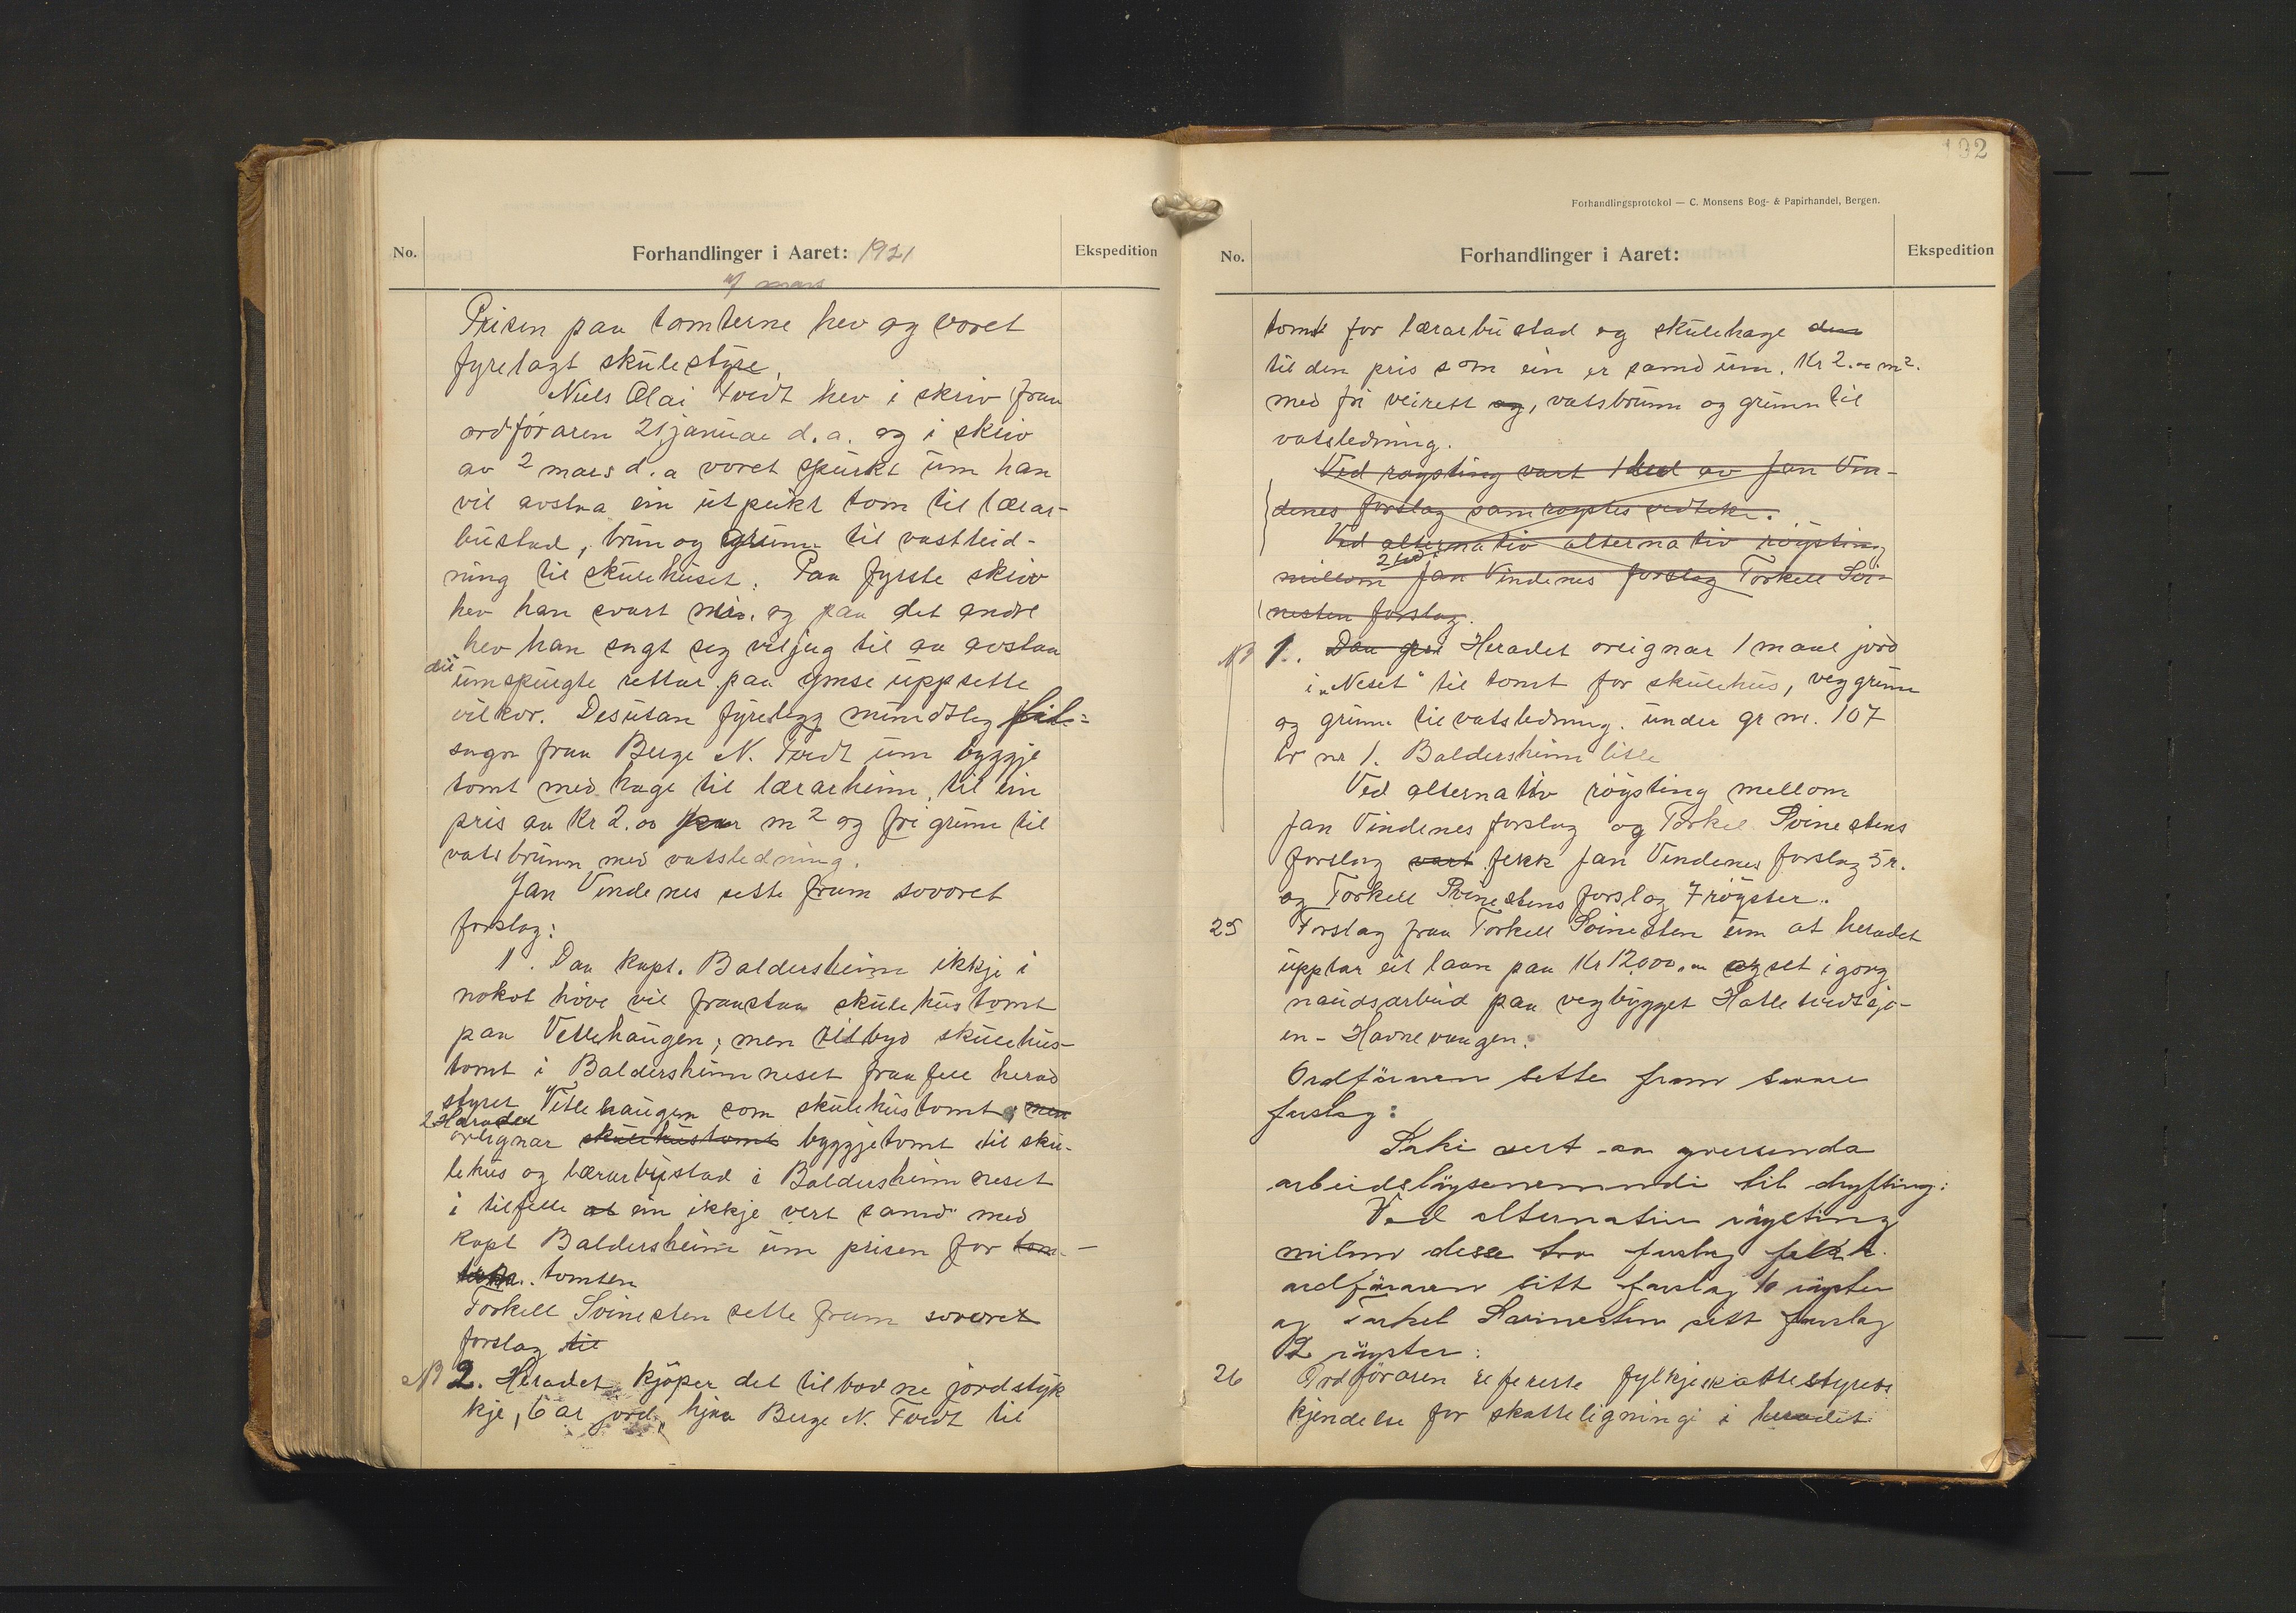 No.
Forhandlinger i Aaret: 1921
Ekspedition
mars
Prisen paa tomterne hev og voret
fyrelagt skulestyre.
Niels Olai Tvedt hev i skriv fraa
ordföraren 21 januar d.a. og i skriv
av 2 mars d.a voret spurkt um han
vil avstaa ein utpeikt tom til lærar-
bustad, brun og grunn til vastleid-
ning til skulehuset. Paa fyrste skriv
hev han svart nei. og paa det andre
hev han sagt seg viljug til aa avstaa
dei
umspurgte rettar paa ymse uppsette
vilkor. Desutan fyrelegg mundtleg til-
sagn fraa Berge N. Tvedt um byggje
tomt med hage til lærarheim, til ein
pris av Kr 2.00 per m² og fri grunn til
vatsbrunn med vatsledning.
Jan Vindenes sette fram sovoret
forslag:
1. Daa kapt. Baldersheim ikkje i
nokot höve vil fraastaa skulehustomt
paa Vetlehaugen; men tilbyd skulehus-
tomt i Baldersheimneset fraafell herad
styret Vetlehaugen som skulehustomt, men
2 Heradet
oreignar skulehustomt byggjetomt til sku-
lehus og lærarbustad i Baldersheimneset
i tilfelle at ein ikkje vert samd med
kapt Baldersheim um prisen for tom-
tomten
Torkell Svinesten sette fram sovoret
forslag til
NB 2. Heradet kjöper det tilbodne jordstyk
kje, 6 ar jord, hjaa Berge N. Tvedt til
102
Forhandlingsprotokol — C. Monsens Bog- & Papirhandel, Bergen.
No.
Forhandlinger i Aaret:
Ekspedition
tomt for lærarbustad og skulehage den
til den pris som ein er samd um. Kr 2.00 m².
med fri veirett og, vatsbrunn og grunn til
vatsledning.
Ved røysting vart 1 led av Jan Vin-
denes forslag samrøystes vedteke.
Ved alternativ alternativ röysting
2 led i
millom Jan Vindenes forslag Torkell Svi-
nesten forslag.
NB 1. Daa Heradet oreignar 1 maal jord
i "Neset" til tomt for skulehus, veggrunn
og grunn til vatsledning. under gr nr. 107
br nr 1. Baldersheim litle
Ved alternativ röysting mellom
Jan Vindenes forslag og Torkel Svinestens
forslag vart fekk Jan Vindenes forslag 5 r.
og Torkell Svinestens forslag 7 röyster.
25 Forslag fraa Torkell Svinesten um at heradet
upptar eit laan paa Kr 12000,00 og set igong
naudsarbeid paa vegbygget Hatletvedtsjo-
en - Havnevaagen.
Ordföraren sette fram sovore
forslag:
Saki vert aa yversenda
arbeidslöysenemndi til dryfting.
Ved alternativ röysting
milom desse tvo forslag fekk
ordföraren sitt forslag 10 röyster
og Torkel Svinesten sitt forslag
2 röyster.
26 Ordföraren refererte fylkjeskattestyrets
kjendelse for skatteligningi i heradet